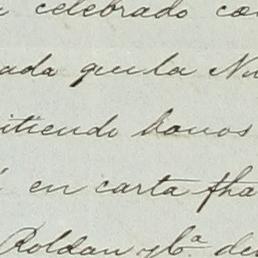 celebrado con
ada que la Nu
itiendo bonos
en carta fha
Roldan y Ca. de